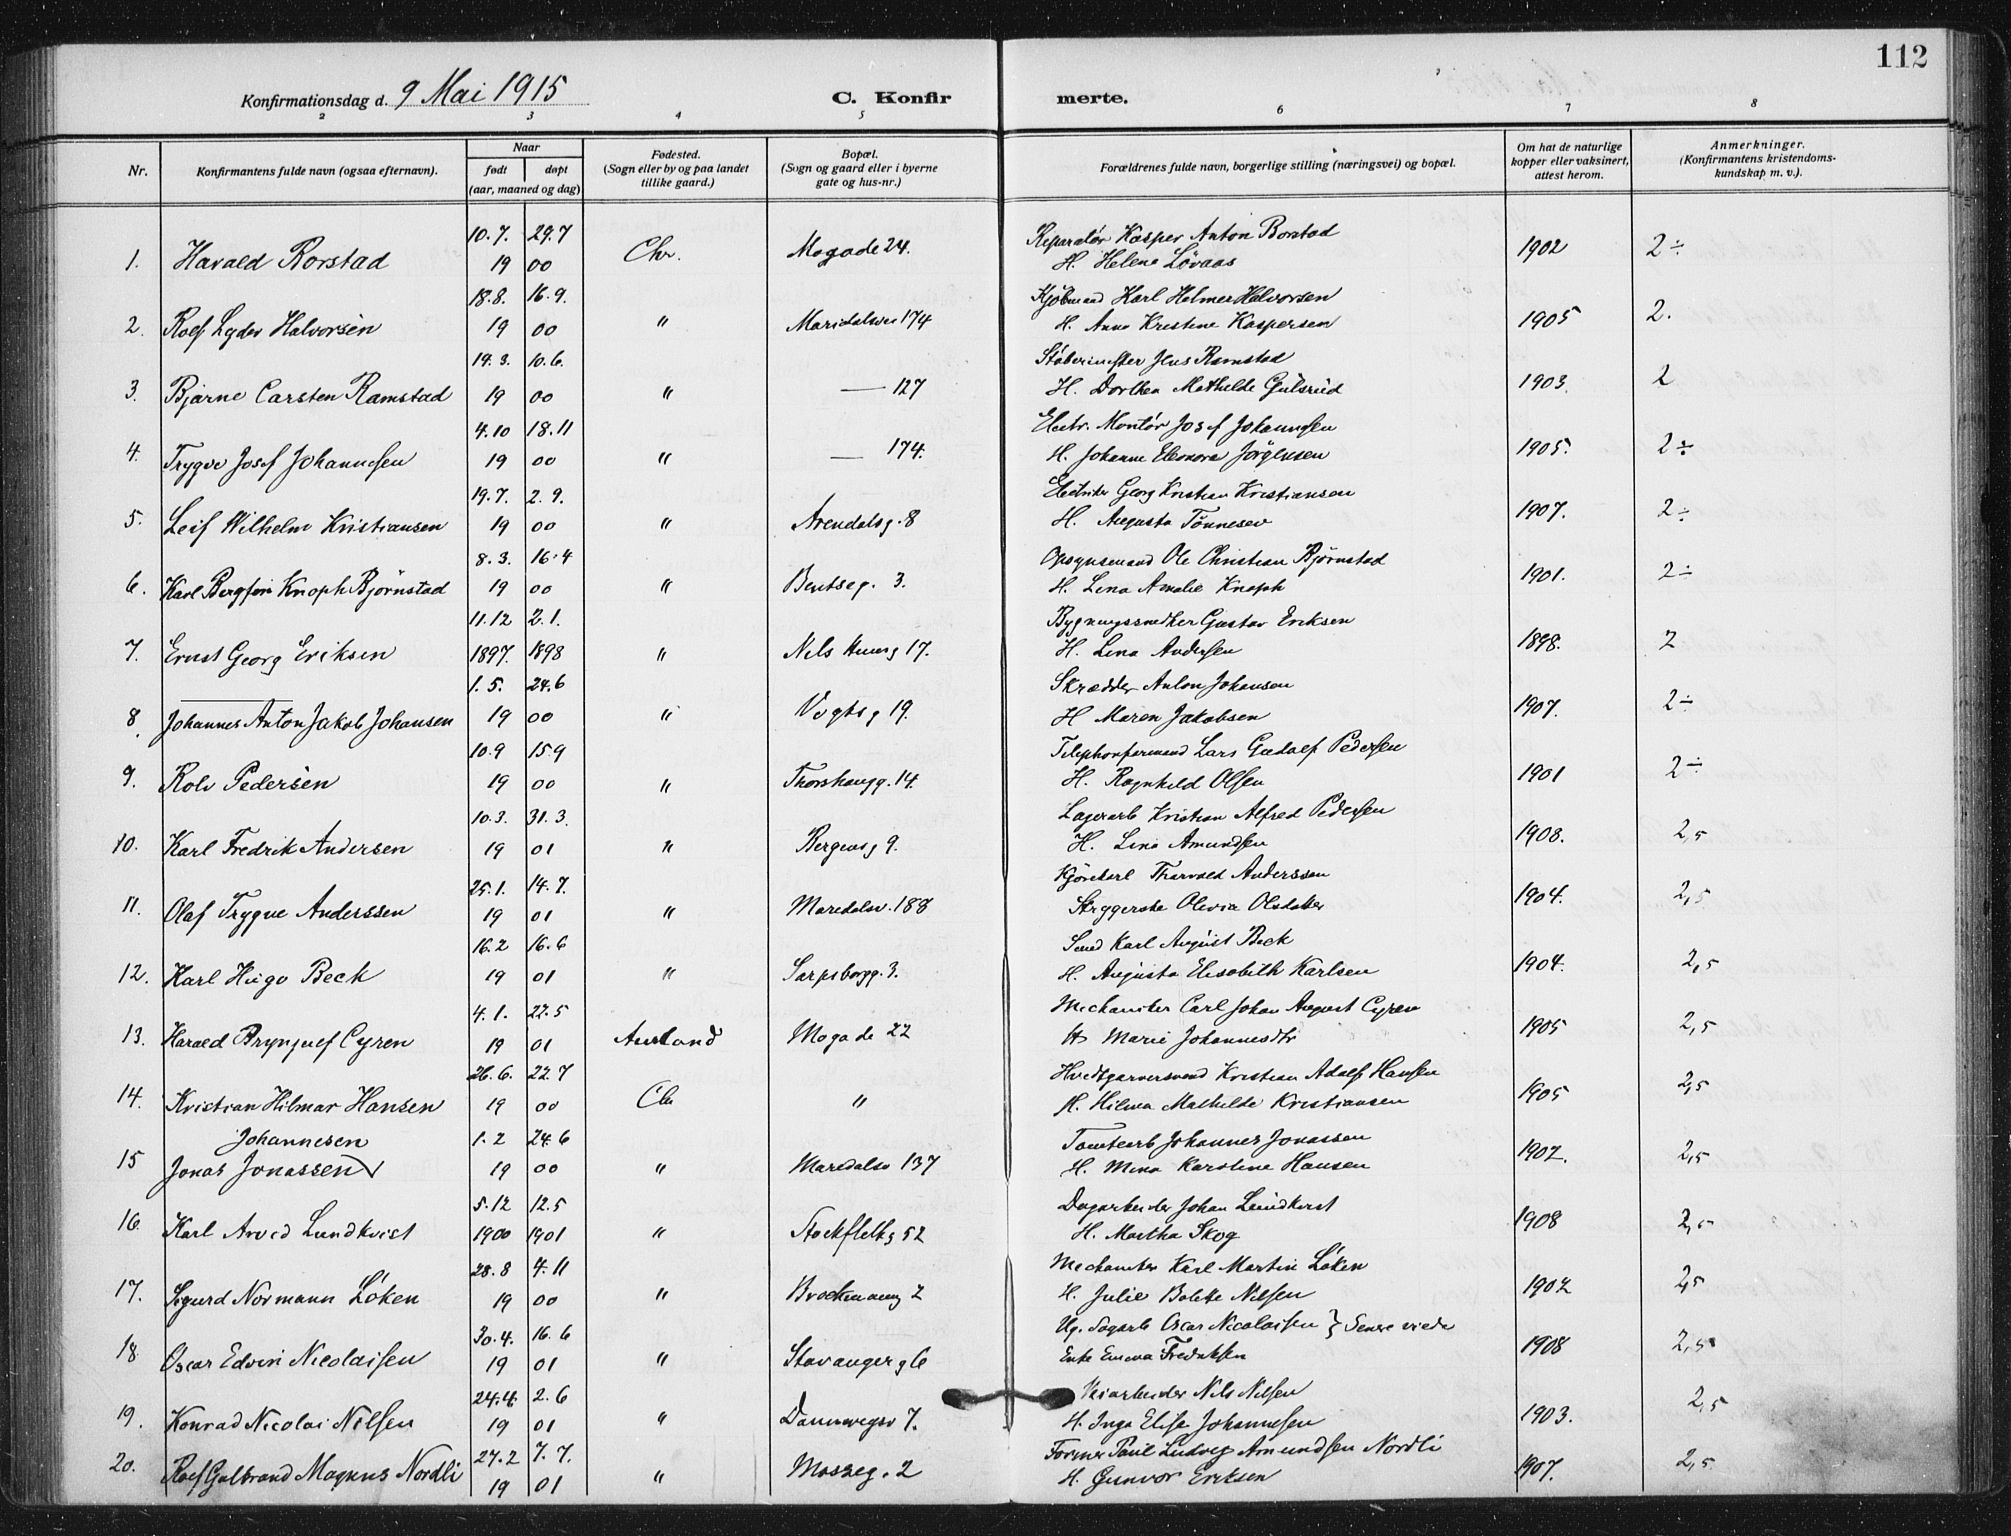 112
Konfirmationsdag d. 9 Mai 1915
C. Konfir merte.
2 3 4 5 6 7 8
Nr. Konfirmantens fulde navn (ogsaa efternavn). Naar født døpt (aar, maaned og dag) Fødested. (Sogn eller by og paa landet tillike gaard.) Bopæl. (Sogn og gaard eller i byerne gate og hus-nr.) Forældrenes fulde navn, borgerlige stilling (næringsvei) og bopæl. Om hat de naturlige kopper eller vaksinert, attest herom. Anmerkninger. (Konfirmantens kristendoms-kundskap m. v.).
10.7. 29.7 Reparatör Kasper Anton Borstad
1. Harald Rorstad 19 00 Chr. Mogade 24. H. Helena Lövaas 1902 2÷
18.8. 16.9. Kjøbmand Karl Helmer Halvorsen
2. Rolf Lyder Halvorsen 19 00 " Maridalsvei 174 H. Anna Kristine Kaspersen 1905 2.
19.3. 10.6. Jens Ramstad
3. Bjarne Carsten Ramstad 19 00 " — 127 H. Dorthea Mathilde Gulsrud 1903. 2
4.10 18.11 Electr. Montör Josef Johannesen
4. Trygve Josef Johannesen 19 00 " — 174. H. Johanne Eleonora Jörgensen 1905. 2÷
19.7. 2.9. Elektriker Georg Kristian Kristiansen
5. Leif Wilhelm Kristiansen 19 00 " Arendalsg. 8 H. Augusta Tönnesen 1907. 2÷
8.3. 16.4 Opsynsmand Ole Christian Bjørnstad
6. Karl Bergfin Knoph Bjørnstad 19 00 " Bentseg. 3. H. Lina Amalie Knoph 1901. 2÷
11.12 2.1. Bygningssnedker Gustav Eriksen
7. Ernst Georg Eriksen 1897. 1898 " Nils Huusg 17. H. Lina Andersen 1898. 2
1.5. 24.6 Skrædder Anton Johansen
8. Johannes Anton Jakob Johansen 19 00 " Vogtsg 19. H Maren Jakobsen 1907. 2÷
10.9 15.9 Telephonformand Lars Gudolf Pedersen
9. Rolv Pedersen 19 00 " Thorshaugg. 14. H. Ragnhild Olsen 1901 2÷
10.3. 31.3. Lagerarb Kristian Alfred Pedersen
10. Karl Fredrik Andersen 19 01 " Bergensg 9. H. Lina Amundsen 1908. 2,5
25.1. 14.7. Kjörekarl Thorvald Anderssen
11. Olaf Trygve Anderssen 19 01 " Maridalsv. 188 Strygerske Olivia Olsdatter 1904. 2,5
16.2 16.6 Karl August Beck
12. Karl Hugo Beck 19 01 " Sarpsborgg. 3. H. Augusta Elisabeth Karlsen 1904. 2,5
4.1. 22.5 Mechaniker Carl Johan August Cyren
13. Harald Brynjulf Cyren 19 01 Aurland Mogade 22 H Marie Johannesdtr 1905 2,5
26.6. 22.7 Hvidtgarversvend Kristian Adolf Hansen
14. Kristian Hilmar Hansen 19 00 Chr " H. Hilma Mathilde Kristiansen 1905 2,5
Johannesen 1.2 24.6 Tomtearb Johannes Jonassen
15 Jonas Jonassen 19 00 " Maridalsv 137 H. Mina Karstine Hansen 1907. 2,5
5.12 12.5 Dagarbeider Johan Lundkvist
16. Karl Arvid Lundkvist 1900 1901 " Stockfletsg 52 H. Martha Skog 1908 2,5
28.8 4.11 Mechaniker Karl Martin Löken
17. Sigurd Normann Löken 19 00 " Brockmanng 2 H. Julie Bolette Nilsen 1902 2,5
30.4. 16.6 Ug. Dagarb Oscar Nicolaisen } Senere viede
18. Oscar Edvin Nicolaisen 19 01 " Stavangerg 6 Enke Emma Fredriksen 1908 2,5
24.4. 2.6 Veiarbeider Nils Nilsen
19. Konrad Nicolai Nilsen 19 01 " Dannevigsv 7. H. Inga Elise Johannesen 1903. 2,5
27.2 7.7. Former Paul Ludvig Amundsen Nordli
20. Rolf Gulbrand Magnus Nordli 19 01 " Mosseg. 2 H. Gunvor Eriksen 1907. 2,5